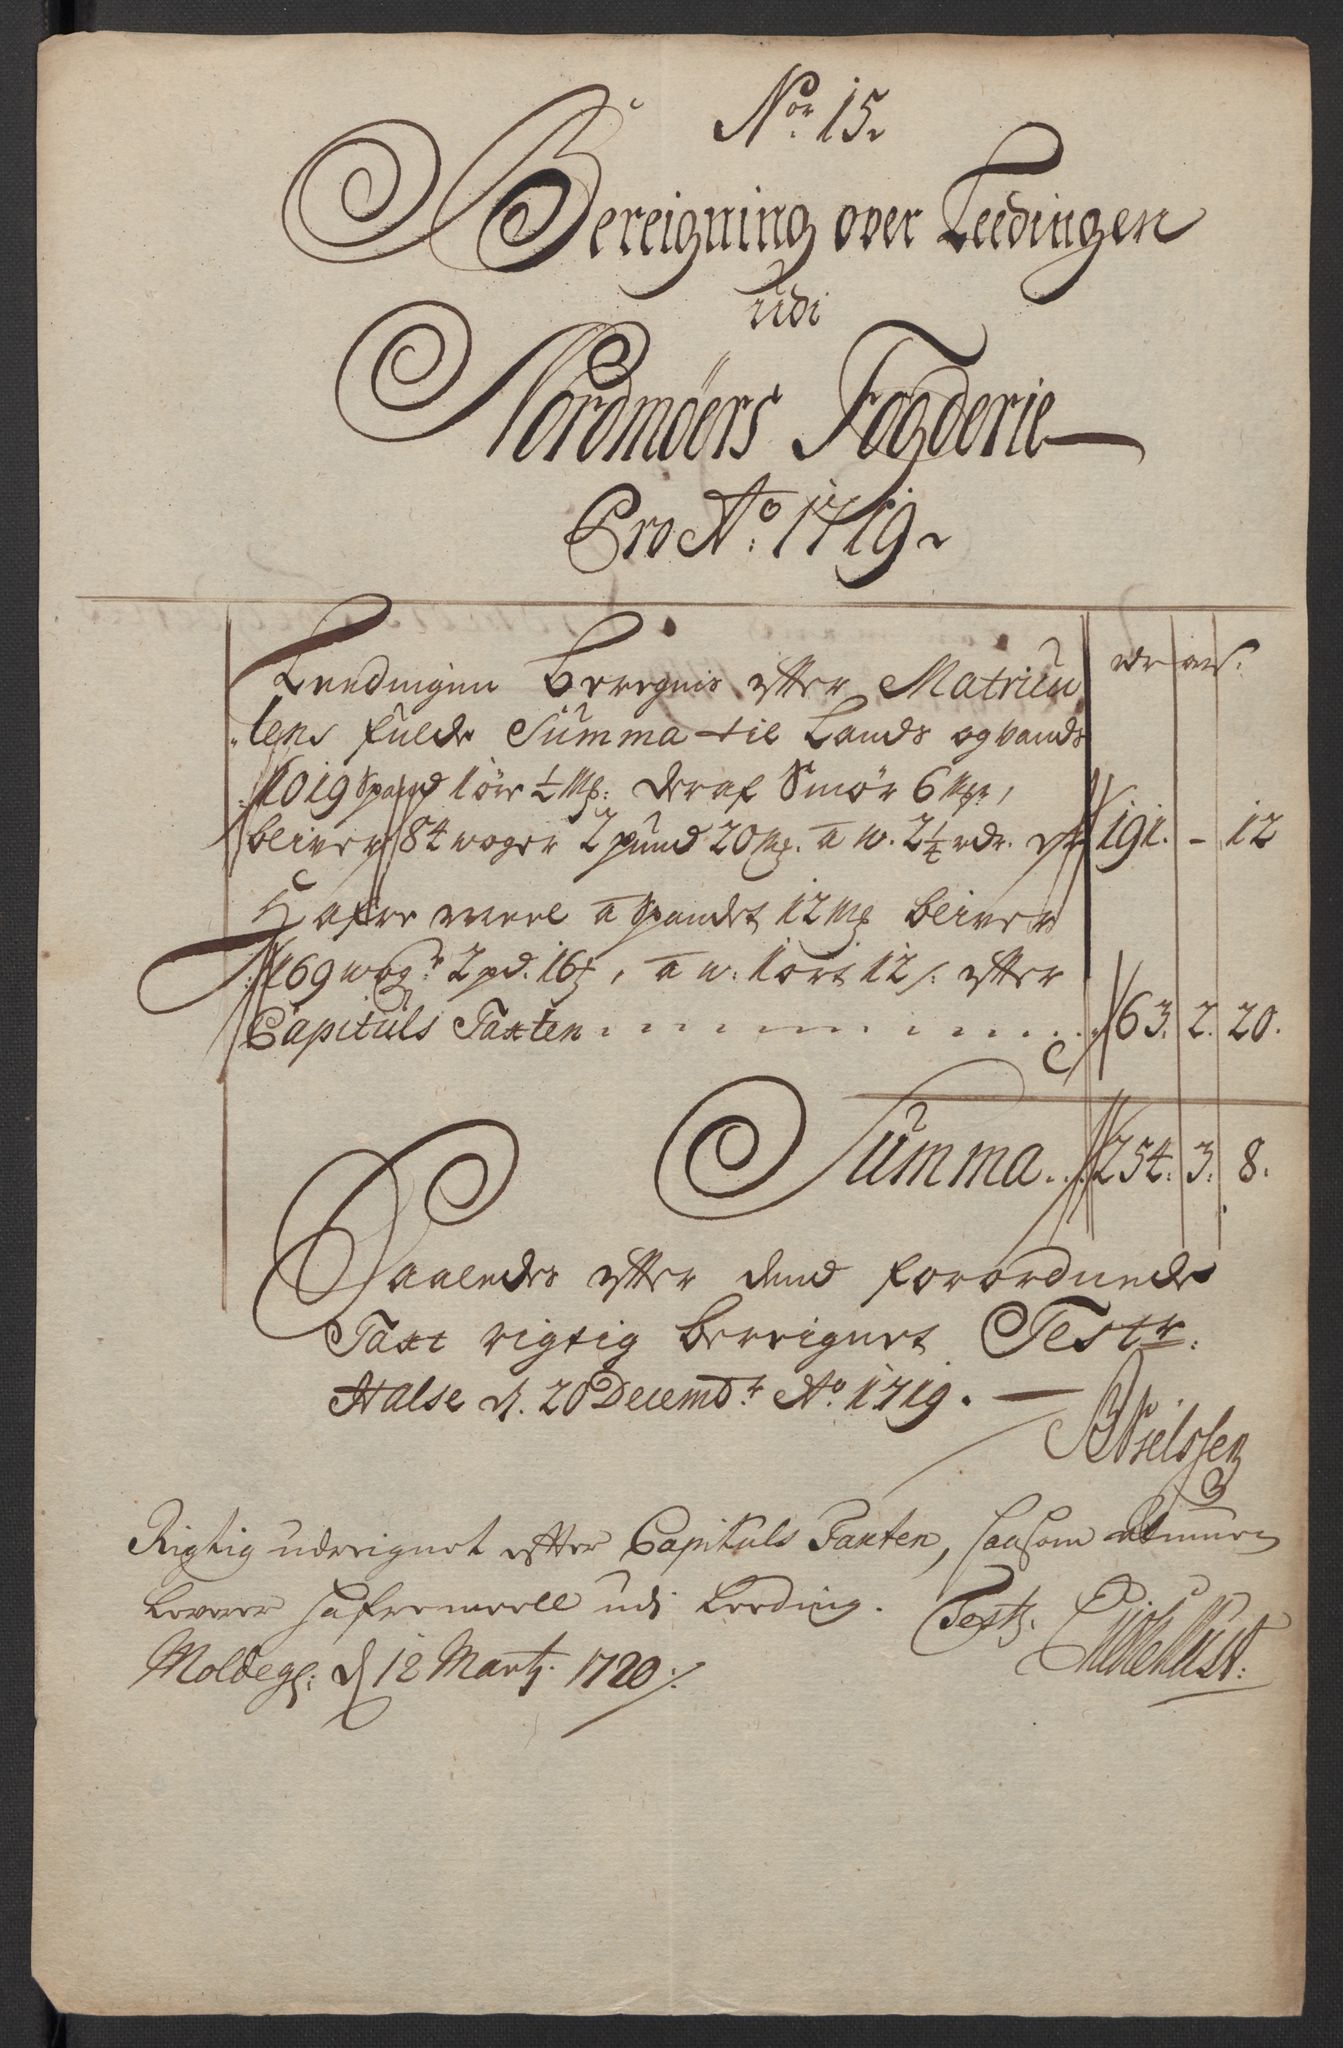 No:r 15.
Bereigning over Leedingen
udi
Nordmøers Fogderie
Pro Ao: 1719.
rdr ort s.
Leedingen beregnis efter Matricu
lens fulde Summa til Lands og vands
1019 Spand 1 øre ½ Mk: deraf Smør 6 Mkr,
bliver 84 woger 2 pund 20 Mk. a w. 2¼ rdr. er 191. - 12
Hafre meel a Spandet 12 Mk bliver
169 wog:r 2 pd. 16, a w: 1 ort 12 s. efter
Capituls Taxten 163. 2. 20.
Summa 254. 3. 8.
Saaledes efter dend forordnede
Taxt rigtig bereignet Test:
Halse d. 20 Decemb:r Ao 1719.
Nielssen
Rigtig udreignet efter Capituls Taxten, saasom Almuen
leverer hafremeell udj Leeding. Test.
Moldeg: d 12 Marty 1720